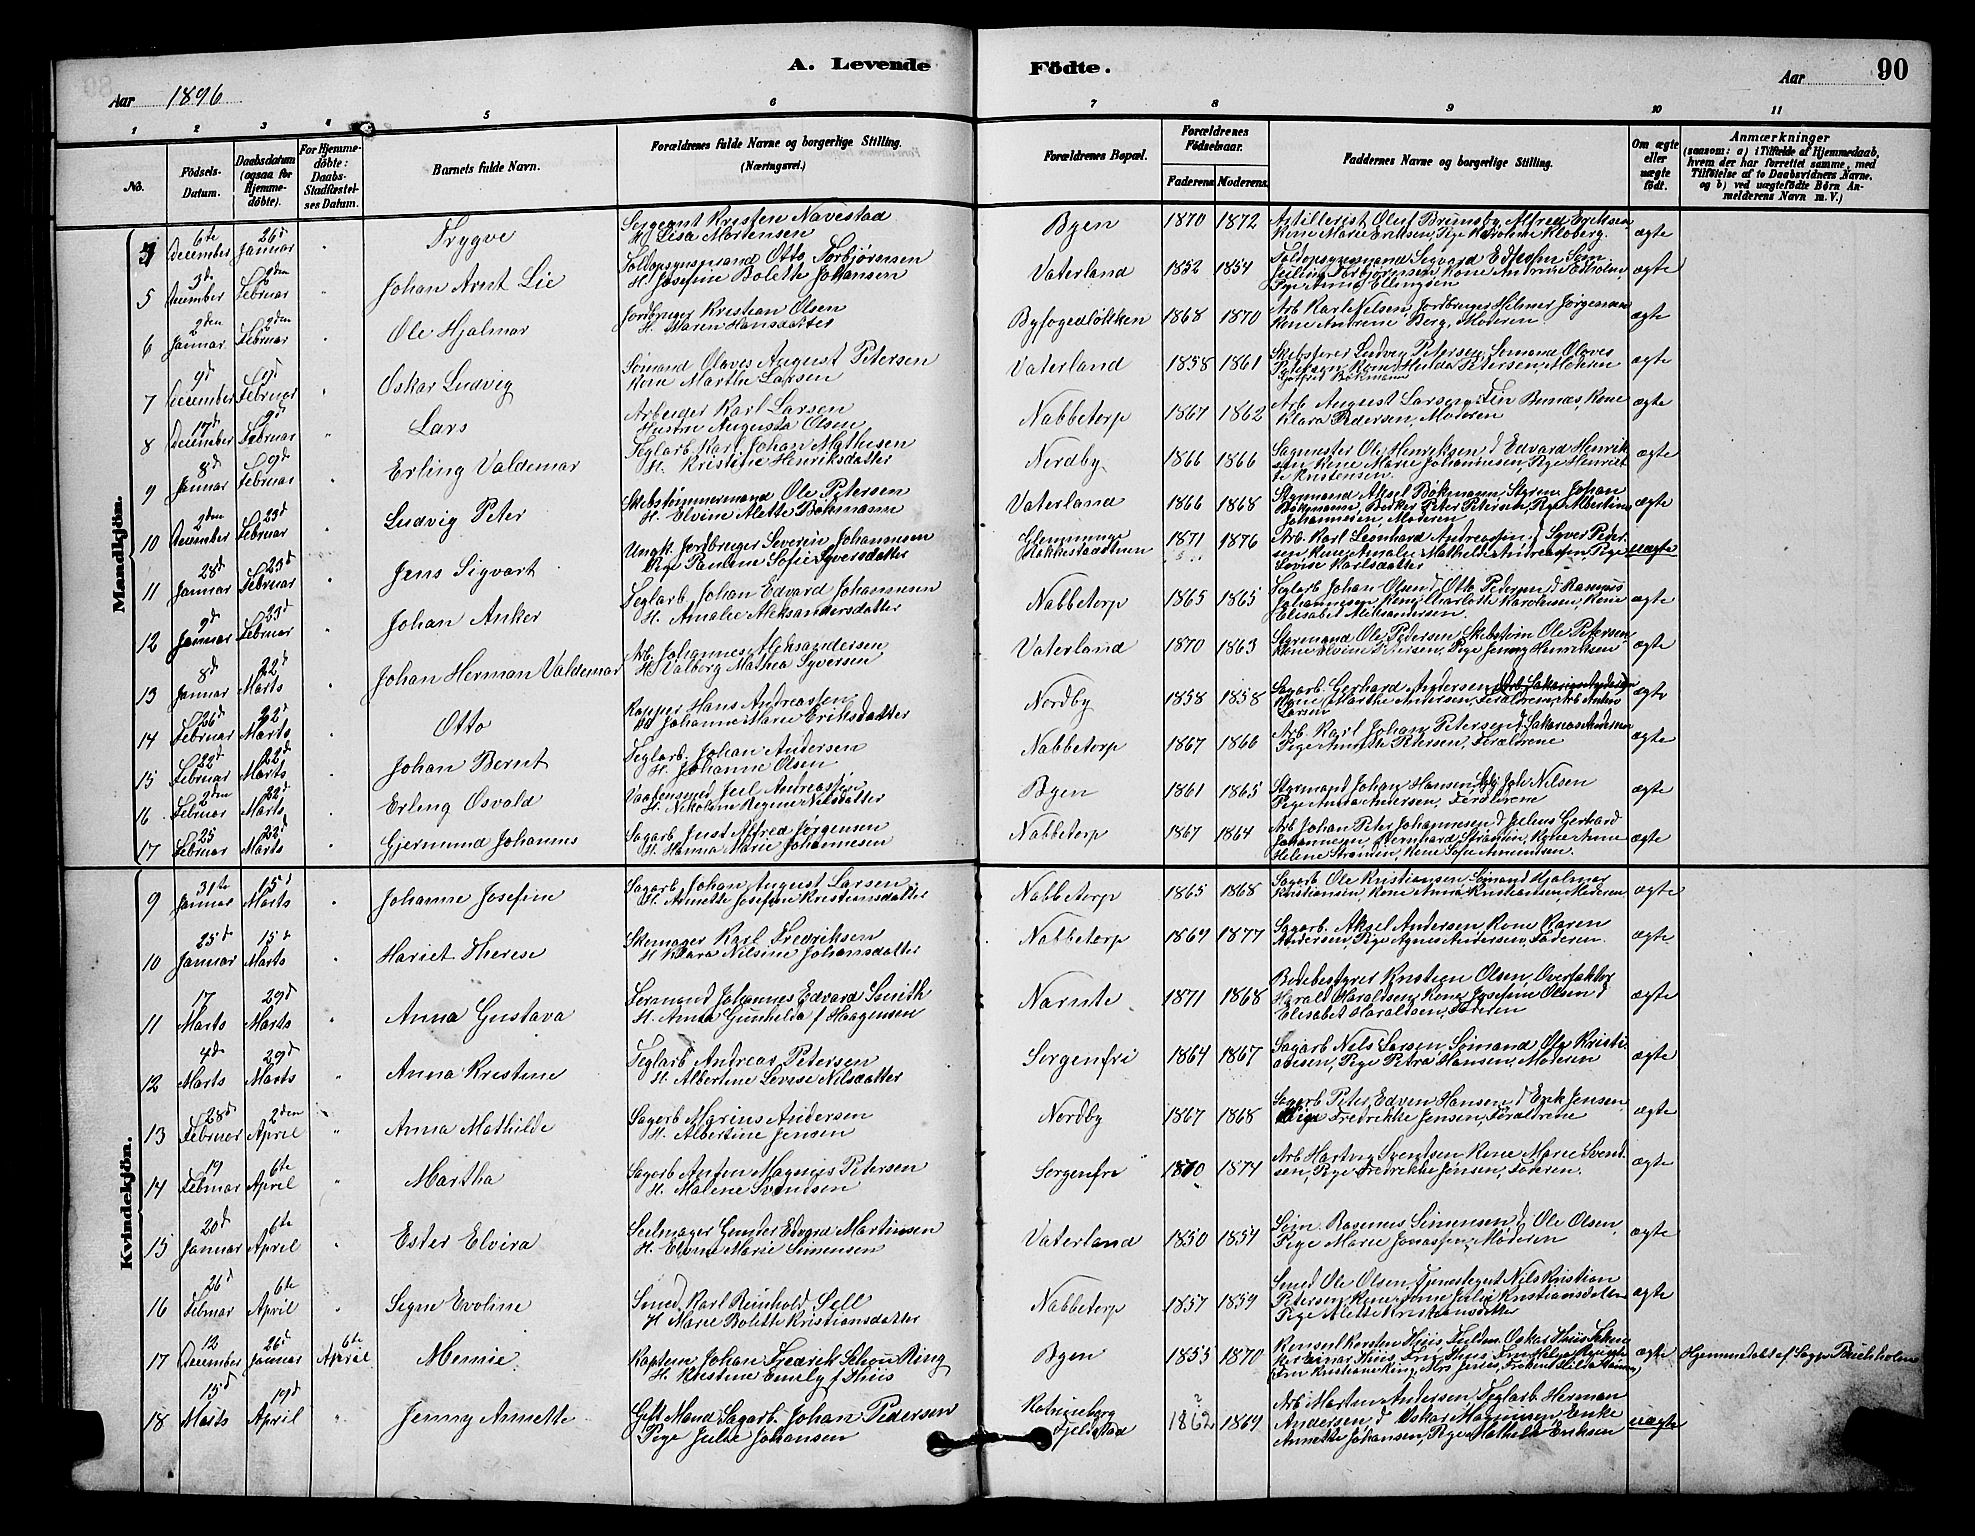 A. Levende Födte.
90
Aar 1896
Aar
1 2 3 4 5 6 7 8 9 10 11
No.
Födsels-Datum.
Daabsdatum (ogsaa for Hjemme-döbte).
For Hjemme-döbte: Daabs-Stadfæstel-ses Datum.
Barnets fulde Navn.
Forældrenes fulde Navne og borgerlige Stilling. (Næringsvei.)
Forældrenes Bopæl.
Forældrenes Födselsaar.
Faderens. Moderens.
Faddernes Navne og borgerlige Stilling.
Om ægte eller uægte födt.
Anmærkninger
(saasom: a) i Tilfælde af Hjemmedaab, hvem der har forrettet samme, med Tilföielse af to Daabsvidners Navne, og b) ved uægtefödte Börn An-melderens Navn m. V.)
Mandkjön.
6te December 26d Januar Trygve Sergeant Kristen Navestad H. Lisa Mortensen Byen 1870 1872 Artillerist Oluf Brynsby, Alfred Eriksen Kone Marie Eriksen, Pige Karoline Kloberg. ægte
5 3d December 2den Februar Johan Arnt Lie Toldopsynsmand Otto Torbjørnsen H. Josefine Bolette Johansen Vaterland 1852 1854 Toldopsynsmand Sigvard Pige Anna Ellingsen ægte
6 2den Januar 2den Februar Ole Hjalmar Jordbruger Kristian Olsen H. Maren Hansdatter Byfogedløkken 1868 1870 Arb. Karl Nilsen, Jordbruger Hilmer Jørgensen Kone Andrene Berg, Moderen ægte
7 9d December 9d Februar Oskar Ludvig Sømand Olaves August Petersen Kone Marthe Larsen Vaterland 1858 1861 Skibsfører Ludvig Petersen, Sømand Olaves Petersen, Kone Hulda Petersen, ægte
8 17d December 9d Februar Lars Arbeider Karl Larsen Hustru Augusta Olsen Nabbetorp 1867 1862 Arb. August Larsen, Kone Klara Pedersen, Moderen ægte
9 8d Januar 9d Februar Erling Valdemar Teglarb. Karl Johan Mathisen H. Kristine Henriksdatter Nordby 1866 1866 Sagmester Ole Henriksen, d Edvard Henrik-sen, Kone Marie Johannesen, Pige Henriet-te Kristensen. ægte
10 2den December 23d Februar Ludvig Peter Skibstømmermand Ole Petersen H. Elvine Alette Bøkmann Vaterland 1866 1868 Styrmand Aksel Bøkmann, Styrm. Johan Bøkmann, Peter Petersen, Pige Albertine Johannesen, Moderen ægte
11 28d Januar 23d Februar Jens Sigvart Ungk. Jordbruger Severin Johannesen Pige Pauline Sofie Syversdatter Glemminge 1871 1876 Arb. Karl Leonhard Andreassen, d Syver Peder-sen, Kone Amalie Mathilde Andreassen, Pige Lovise Karlsdatter uægte
12 9d Januar 23d Februar Johan Anker Teglarb. Johan Edvard Johannesen H. Amalie Aleksandersdatter Nabbetorp 1865 1865 Teglarb. Johan Olsen, d Otto Pedersen, d Rasmus Johannesen, Kone Charlotte Karolusen, Kone Elisabet Aleksandersen. ægte
13 8d Januar 22d Marts Johan Herman Valdemar Arb. Johannes Aleksandersen H. Valborg Mathea Syversen Vaterland 1870 1863 Styrmand Ole Pedersen, Skibstøm. Ole Petersen, Kone Elvine Petersen, Pige Jenny Henriksen ægte
14 26d Februar 22d Marts Otto Hans Andreassen H. Johanne Marie Eriksdatter Nordby 1858 1858 Sagarb. Gerhard Andersen, Kone Marthe Andersen, Forældrene, Arb. Anton Larsen ægte
15 22d Februar 22d Marts Johan Bernt Teglarb. Johan Andersen H. Johanne Olsen Nabbetorp 1867 1866 Arb. Karl Johan Petersen, d Sakarias Andersen Pige Annette Petersen, Forældrene ægte
16 2den Februar 22d Marts Erling Osvald Vaabensmed Juel Andreassen H. Nikoline Regine Nilsdatter Byen 1861 1865 Styrmand Johan Hansen, Joh. Nilsen Pige Anna Andersen, Forældrene ægte
17 25 Februar 22d Marts Gjermund Johannes Sagarb. Just Alfred Jørgensen H. Hanna Marie Johannesen Nabbetorp 1867 1864 Arb. Johan Peter Johannesen, d Julius Gerhard Johannesen, Bernhard Strømten, Kone Anne Helene Strømten, Kone Sofie Amundsen. ægte
Kvindekjön.
9 31te Januar 15d Marts Johanne Josefine Sagarb. Johan August Larsen H. Annette Josefine Kristiansdatter Nabbetorp 1865 1868 Sagarb. Ole Kristiansen, Sømand Hjalmar Kristiansen, Kone Anna Kristiansen, Moderen ægte
10 25d Januar 15d Marts Hariet Therese Skomager Karl Fredriksen H. Klara Nilsine Johansdatter Nabbetorp 1869 1877 Sagarb. Aksel Andersen, Kone Karen Andersen, Pige Agnes Andersen, Faderen. ægte
11 17 Marts 29d Marts Anna Gustava Formand Johannes Edvard Smith H. Anna Gunhilda f Haagensen Narnte 1871 1868 Bodebestyrer Kristian Olsen, Overfaktor Harald Haraldsen, Kone Josefine Olsen, d Elisabet Haraldsen, Faderen ægte
12 4d Marts 29d Marts Anna Kristine Teglarb. Andreas Petersen H. Albertine Lovise Nilsdatter Sorgenfri 1864 1867 Sagarb. Nils Larsen, Sømand Ole Kristi-ansen, Pige Petra Hansen, Moderen ægte
13 28d Februar 2den April Anna Mathilde Sagarb. Marius Andersen H. Albertine Jensen Nordby 1867 1868 Sagarb. Peter Edvin Hansen, d Erik Jensen, Pige Fredrikke Jensen, Forældrene ægte
14 19 Februar 6te April Martha Sagarb. Anton Magnus Petersen H. Malene Svendsen Sorgenfri 1870 1874 Arb. Hartvig Svendsen, Kone Marie Svend-sen, Pige Fredrikke Jensen, Faderen. ægte
15 20d Januar 6te April Ester Elvira Seilmager Gunder Edvard Martinsen H. Elvine Marie Simensen Vaterland 1850 1854 Søm. Rasmus Simensen, d Ole Olsen, Pige Marie Jonassen, Moderen ægte
16 26d Februar 6te April Signe Evoline Smed Karl Reinhold Sell H. Marie Bolette Kristiansdatter Nabbetorp 1857 1859 Smed Ole Olsen, Tjenestegut Nils Kristian Petersen, Kone Julie Kristiansdatter Pige Alette Kristiansdatter ægte
17 12 December 26d Januar 6te April Mennie Kaptein Johan Fredrik Schou Ring H. Kristine Emely f Thiis Byen 1855 1870 Konsul Karsten Thiis, Oskar Thiis, ægte Hjemmedøbt af Buchholm
18 15d Marts 19d April Jenny Annette Gift Mand Sagarb. Johan Pedersen Pige Julie Johansen Katrineborg Fjeldstad 1862 1869 Arb. Martin Andersen, Teglarb. Herman Andersen, d Oskar Magnusen, Enke Annette Johansen, Pige Mathilde Eriksen uægte